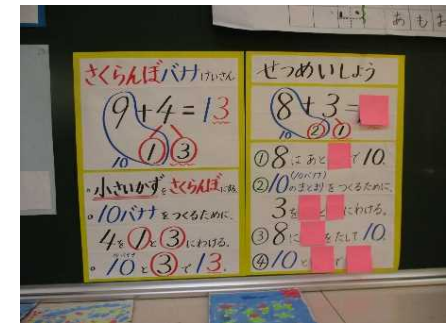 さくらんぼバナナけいさん
9+4=13
1 3
10
小さいかずをさくらんぼに
10バナナをつくるために、
4を1と3にわける。
10と3で13。
せつめいしよう
8+3=
2 1
10
①8にあとで10。
②10のまとまりをつくるために、
3をとにわける。
③8にをたして10。
④10とで
あもよ